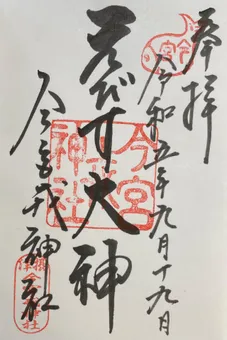 奉拝
令和五年九月十九日
えびす大神
今宮戎神社
今宮
神社